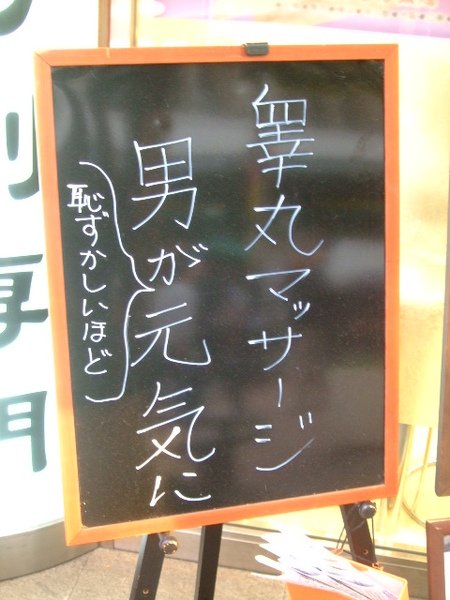 睾丸マッサージ
男が元気に
恥ずかしいほど
専門